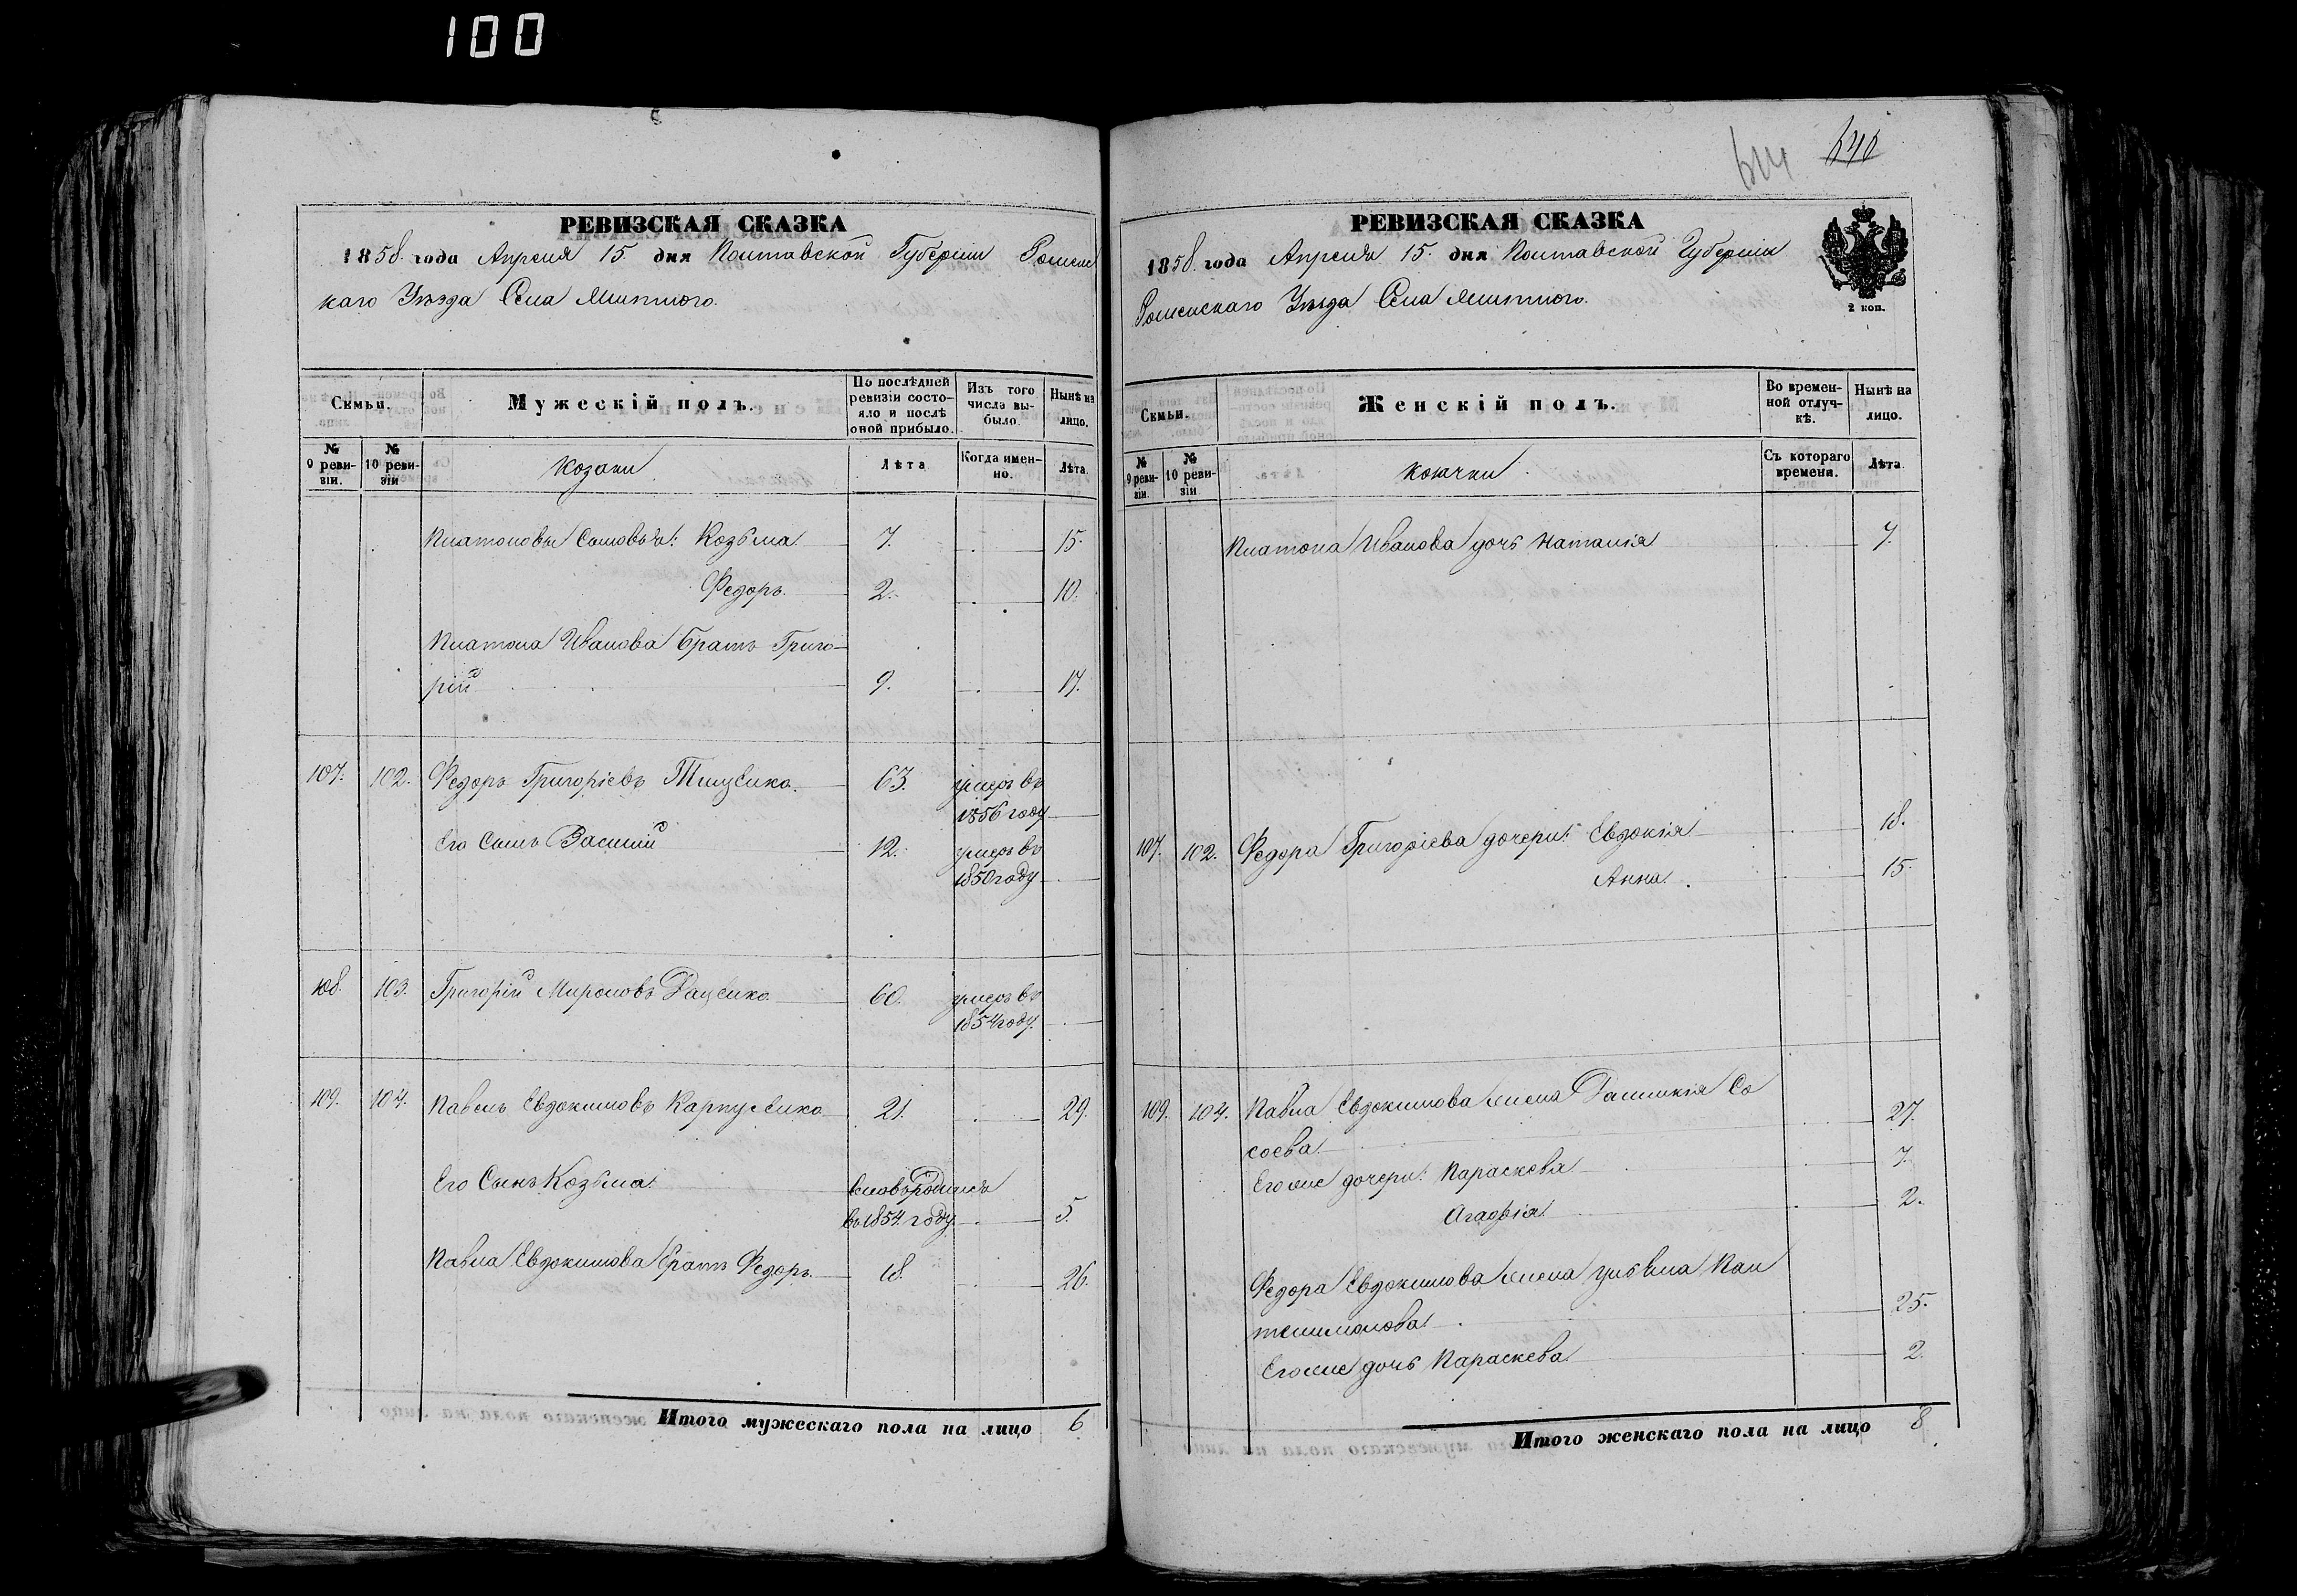 100
РЕВИЗСКАЯ СКАЗКА
1858. года Апреля 15. дня Полтавской Губерніи Роменс
каго Уѣзда Села Липтного.
Семьи.
Мужескій полъ.
По послѣдней ревизіи состояло и послѣ оной прибыло.
Изъ того числа выбыло.
Нынѣ на лицо.
№ 9 ревизіи.
№ 10 ревизіи
Козаки
Лѣта
Когда именно.
Лѣта.
Платоновы Сыновья: Козьма 7. 15.
Федоръ. 2. 10.
Платона Иванова Братъ Григо-
рій 9. 17.
107. 102. Федоръ Григоріевъ Тищенко. 63. умеръ въ
1856 году
Его Сынъ Василій 12. умеръ въ
1850 году
108. 103. Григорій Мироновъ Даценко 60. умеръ въ
1854 году.
109. 104. Павелъ Евдокимовъ Карпусенко 21. 29.
Его Сынъ Козьма вновь родился
въ 1854 году. 5.
Павла Евдокимова братъ Федоръ. 18. 26.
Итого мужескаго пола на лицо 6
640
РЕВИЗСКАЯ СКАЗКА
1858. года Апреля 15. дня Полтавской Губерніи
Роменскаго Уѣзда Села Липтного.
2 коп.
Семьи.
Женскій полъ.
Во временной отлучкѣ.
Нынѣ на лицо.
№ 9 ревизіи.
№ 10 ревизіи
козачки
Съ котораго времени.
Лѣта.
Платона Иванова дочь Наталія 7.
107. 102. Федора Григоріева дочери: Евдокія 18.
Анна. 15.
109. 104. Павла Евдокимова жена Домникія Со
соева 27.
Его же дочери: Параскева 7.
Агафія 2.
Федора Евдокимова жена Ульяна Пан
телимонова 25.
Его же дочь Параскева 2.
Итого женскаго пола на лицо 8